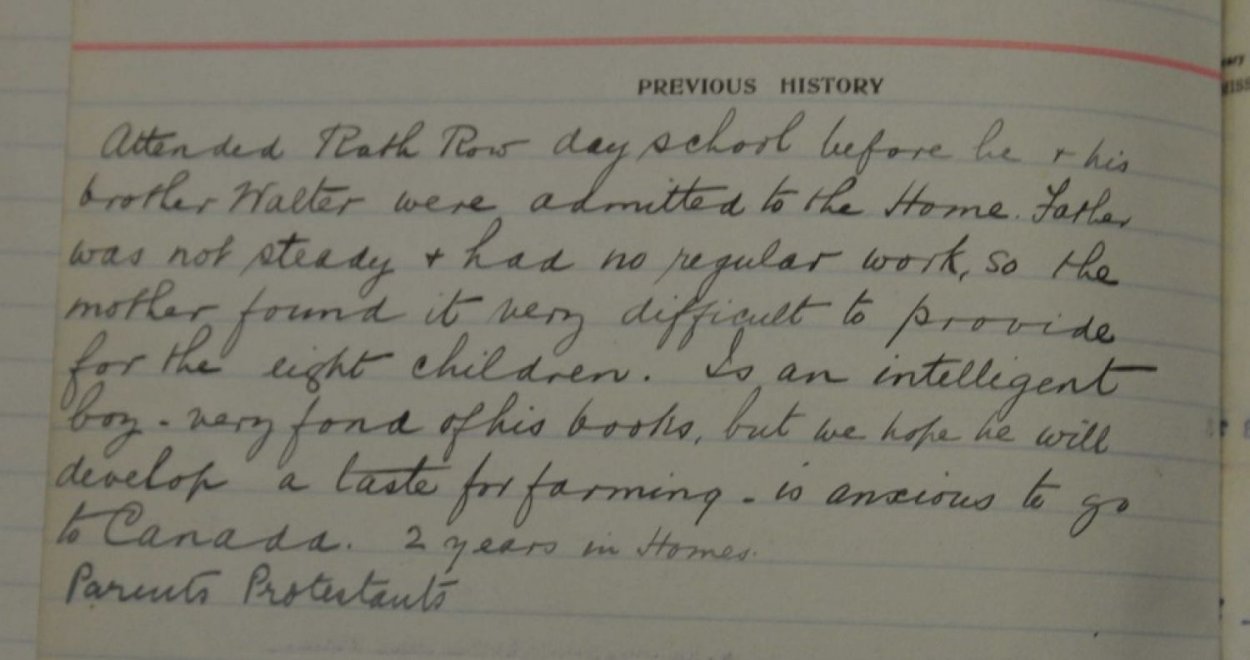 PREVIOUS HISTORY
Attended Rath Row day school before he + his
brother Walter were admitted to the Home. Father
was not steady + had no regular work, so the
mother found it very difficult to provide
for the eight children. Is an intelligent
boy - very fond of his books, but we hope he will
develop a taste for farming - is anxious to go
to Canada. 2 years in Homes.
Parents Protestants